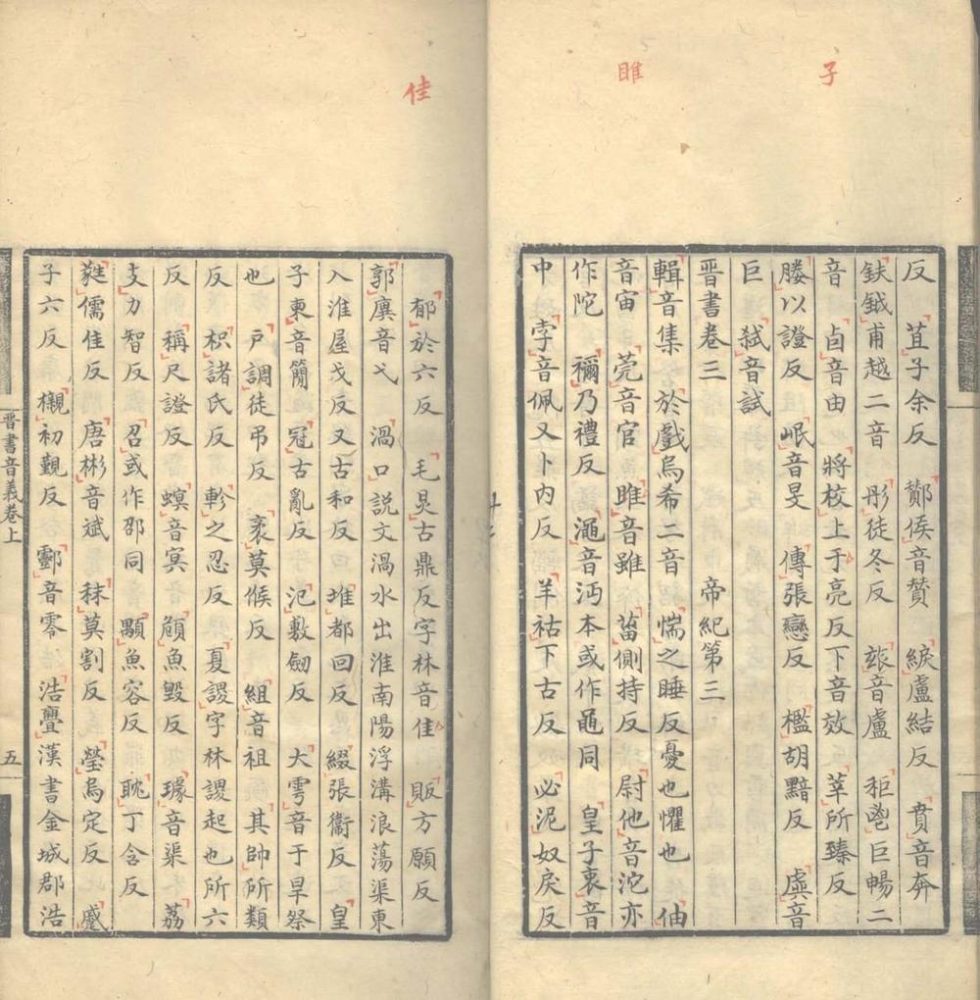 子
睢
反 苴子余反 酇侯音贊 綟盧結反 賁音奔
鈇鉞甫越二音 彤徒冬反 玈音盧 秬鬯巨暢二
音 卣音由 將校上子亮反下音效 莘所臻反
媵以證反 岷音旻 傳張戀反 檻胡黯反 虡音
巨 弑音試
晉書卷三 帝紀第三
輯音集 於戲烏希二音 惴之睡反憂也懼也 伷
音宙 莞音官 雎音雖 菑側持反 尉他音沱亦
作陀 禰乃禮反 澠音沔本或作黽同 皇子衷音
中 孛音佩又卜内反 羊祜下古反 必泥奴戾反
佳
郁於六反 毛炅古鼎反字林音佳 販方願反
郭廙音弋 渦口説文渦水出淮南陽浮溝浪蕩渠東
入淮屋戈反又古和反 堆都回反 綴張衞反 皇
子柬音簡 冠古亂反 氾敷劒反 大雩音于旱祭
也 戶調徒吊反 袤莫候反 組音祖 其帥所類
反 枳諸氏反 軫之忍反 夏謖字林謖起也所六
反 稱尺證反 螟音冥 頠魚毀反 璩音渠 荔
支力智反 召或作邵同 顒魚容反 耽丁含反
蕤儒佳反 唐彬音斌 秣莫割反 瑩烏定反 蹙
子六反 櫬初覲反 酃音零 浩亹漢書金城郡浩
晉書音義卷上
五